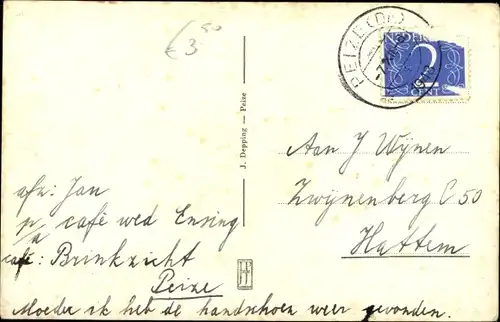 €3,50
PEIZE (Dr.)
NEDERL
J. Depping - Peize
Aan J Wijnen
Zwijnenberg C 50
Hattem
afz: Jan
p/a café wed Ensing
café: Brinkzicht
Peize
Moeder ik heb de handschoen weer gevonden.